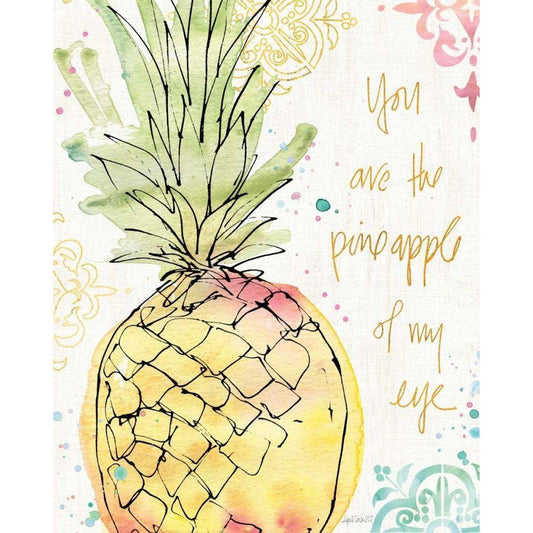 You
are the
pineapple
of my
eye